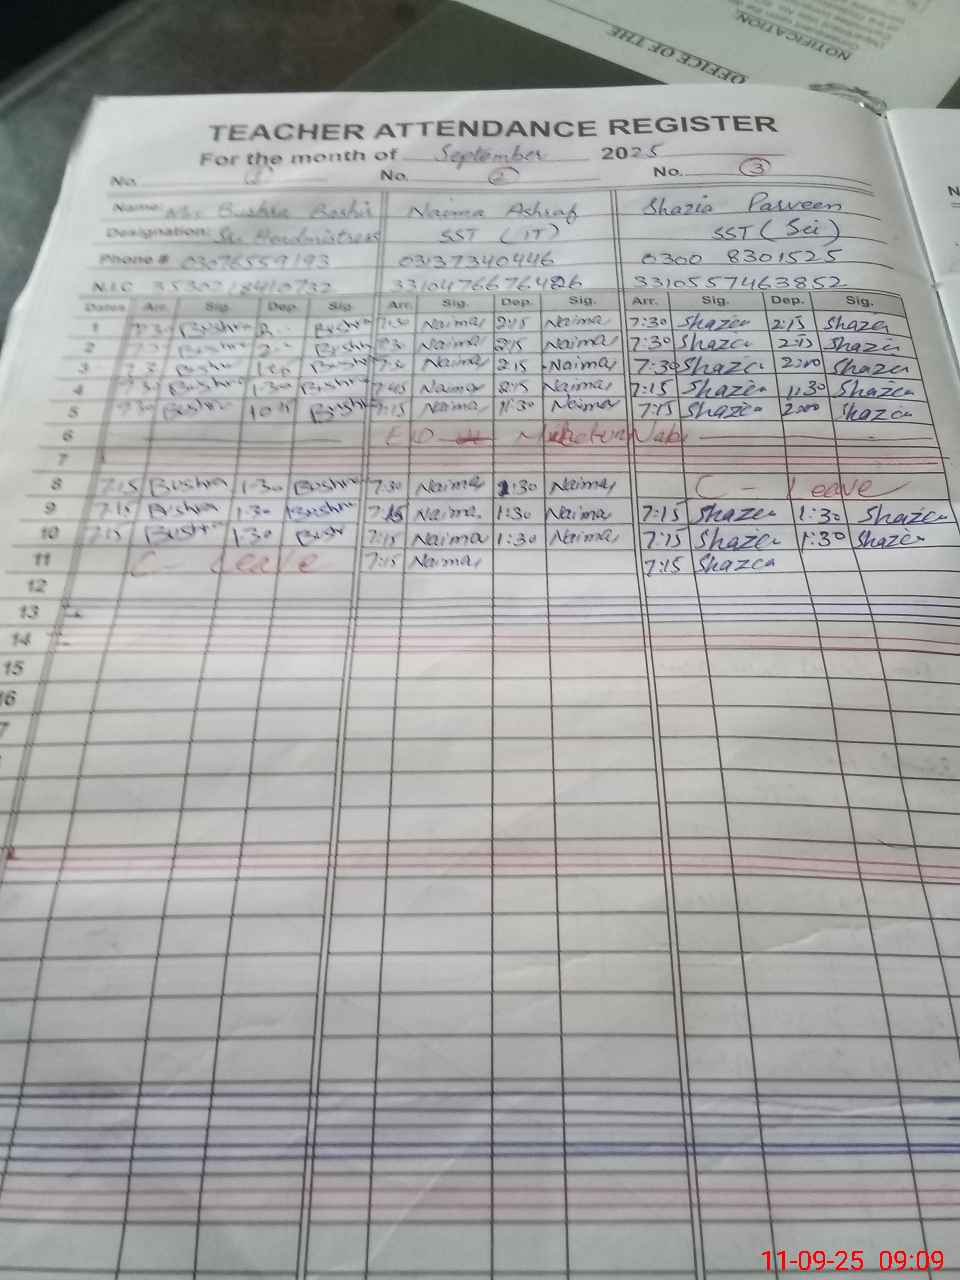 OFFICE OF THE
NOTIFICATION
TEACHER ATTENDANCE REGISTER
For the month of September 2025
No. 1 No. 2 No. 3
Name: Bushra Bashir Naima Ashraf Shazia Parveen
Designation: Sr. Headmistress SST (IT) SST (Sci)
Phone # 03076559193 03137340446 0300 8301525
N.I.C 3310557463852
Dates Arr. Sig. Dep. Sig. Arr. Sig. Dep. Sig. Arr. Sig. Dep. Sig.
1 Bushra Bushra 7:30 Naima 2:15 Naima 7:30 Shazia 2:15 Shazia
2 Bushra Naima 2:15 Naima 7:30 Shazia 2:15 Shazia
3 Naima 2:15 Naima 7:30 Shazia 2:00 Shazia
4 Bushra 1:30 Bushra 7:45 Naima 2:15 Naima 7:15 Shazia 1:30 Shazia
5 Bushra Bushra 7:15 Naima 11:30 Naima 7:15 Shazia 2:00 Shazia
6
7
8 7:15 Bushra 1:30 Bushra 7:30 Naima 1:30 Naima C - Leave
9 7:15 Bushra 1:30 Bushra 7:15 Naima 1:30 Naima 7:15 Shazia 1:30 Shazia
10 7:15 Bushra 1:30 Bushr 7:15 Naima 1:30 Naima 7:15 Shazia 1:30 Shazia
11 C - Leave 7:15 Naima 7:15 Shazia
12
13
14
15
16
7
11-09-25 09:09